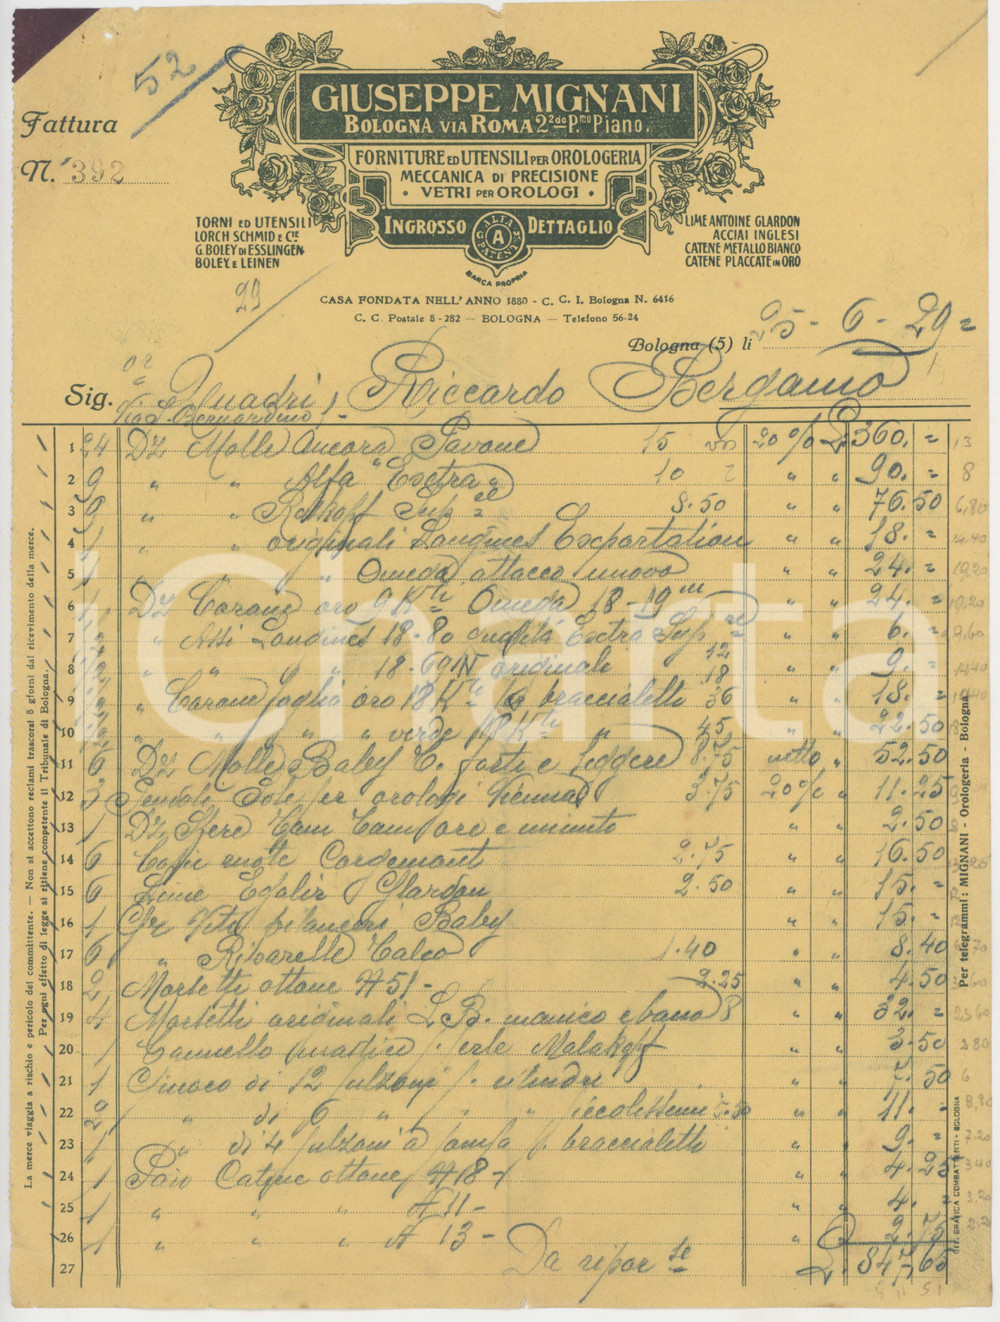 52
Fattura
N. 392
GIUSEPPE MIGNANI
BOLOGNA VIA ROMA 2 2do P.mo PIANO.
FORNITURE ED UTENSILI PER OROLOGERIA
MECCANICA DI PRECISIONE
· VETRI PER OROLOGI ·
INGROSSO DETTAGLIO
ALFA
A
PATENT
MARCA PROPRIA
TORNI ED UTENSILI
LORCH SCHMID E Cie
G. BOLEY DI ESSLINGEN
BOLEY E LEINEN
LIME ANTOINE GLARDON
ACCIAI INGLESI
CATENE METALLO BIANCO
CATENE PLACCATE IN ORO
29
CASA FONDATA NELL'ANNO 1880 - C. C. I. Bologna N. 6416
C. C. Postale 8-282 — BOLOGNA — Telefono 56-24
Bologna (5) li 25-6-29=
Sig. Quadri Riccardo Bergamo
Via S. Bernardino
1 24 Dz Molle Ancora Pavone 15 20% L. 360. = 13
2 9 " " Alfa Extra 10 " " 90. = 8
3 9 " " Roskopf Sup 8.50 " " 76.50 6,80
4 1 " " originali Longines Exportation " " 18. = 14.40
5 1 " " " Omega attacco nuovo " " 24. = 19,20
6 1 Dz Corone oro 9 Kti Omega 18-19 " " 24. = 19,20
7 " Assi Longines 18-80 qualità Extra Sup 12 " " 6. = 9,60
8 " " " 18-69N originale 18 " " 9. = 14.40
9 " Corone foglia oro 18 K braccialetti 36 " " 18. =
10 " " " " verde 18 K " 45 " " 22.50
11 6 Dz Molle Baby C. forti e leggere 8.75 netto " 52.50
12 3 Pendole Sole per orologi Vienna 3.75 20% " 11.25
13 1 Dz Sfere Tam Tam ore e minuto " " 2.50
14 6 Copie ruote Cordemont 2.75 " " 16.50
15 6 Lime Egalir Glardon 2.50 " " 15. =
16 1 Gr Viti bilancieri Baby " " 15. =
17 6 " Ribarelle Talco 1.40 " " 8.40
18 2 Morsetti ottone N 51- 2.25 " " 4.50
19 4 Morsetti originali L.B. manico ebano 8 " " 32. =
20 1 Cannello mastice Malakoff " " 3.50 2.80
21 1 Giuoco di 12 pulzoni p. cilindri " " 7.50 6
22 2 " di 6 " " " piccolissimi 5.50 " " 11. - 8,80
23 1 " di 4 pulzoni a pompa p. braccialetti " " 9. = 7.20
24 1 Paio Catene ottone N 18- " " 4.25 3.40
25 1 " " " N 11- " " 4. = 3,20
26 1 " " " N 13- " " 2.75 2,20
27 Da riporse L. 847,65
La merce viaggia a rischio e pericolo del committente. — Non si accettono reclami trascorsi 8 giorni dal ricevimento della merce.
Per ogni effetto di legge si ritiene competente il Tribunale di Bologna.
Per telegrammi: MIGNANI - Orologeria - Bologna
DIT. GRAFICA COMBATTENTI - BOLOGNA
Charta